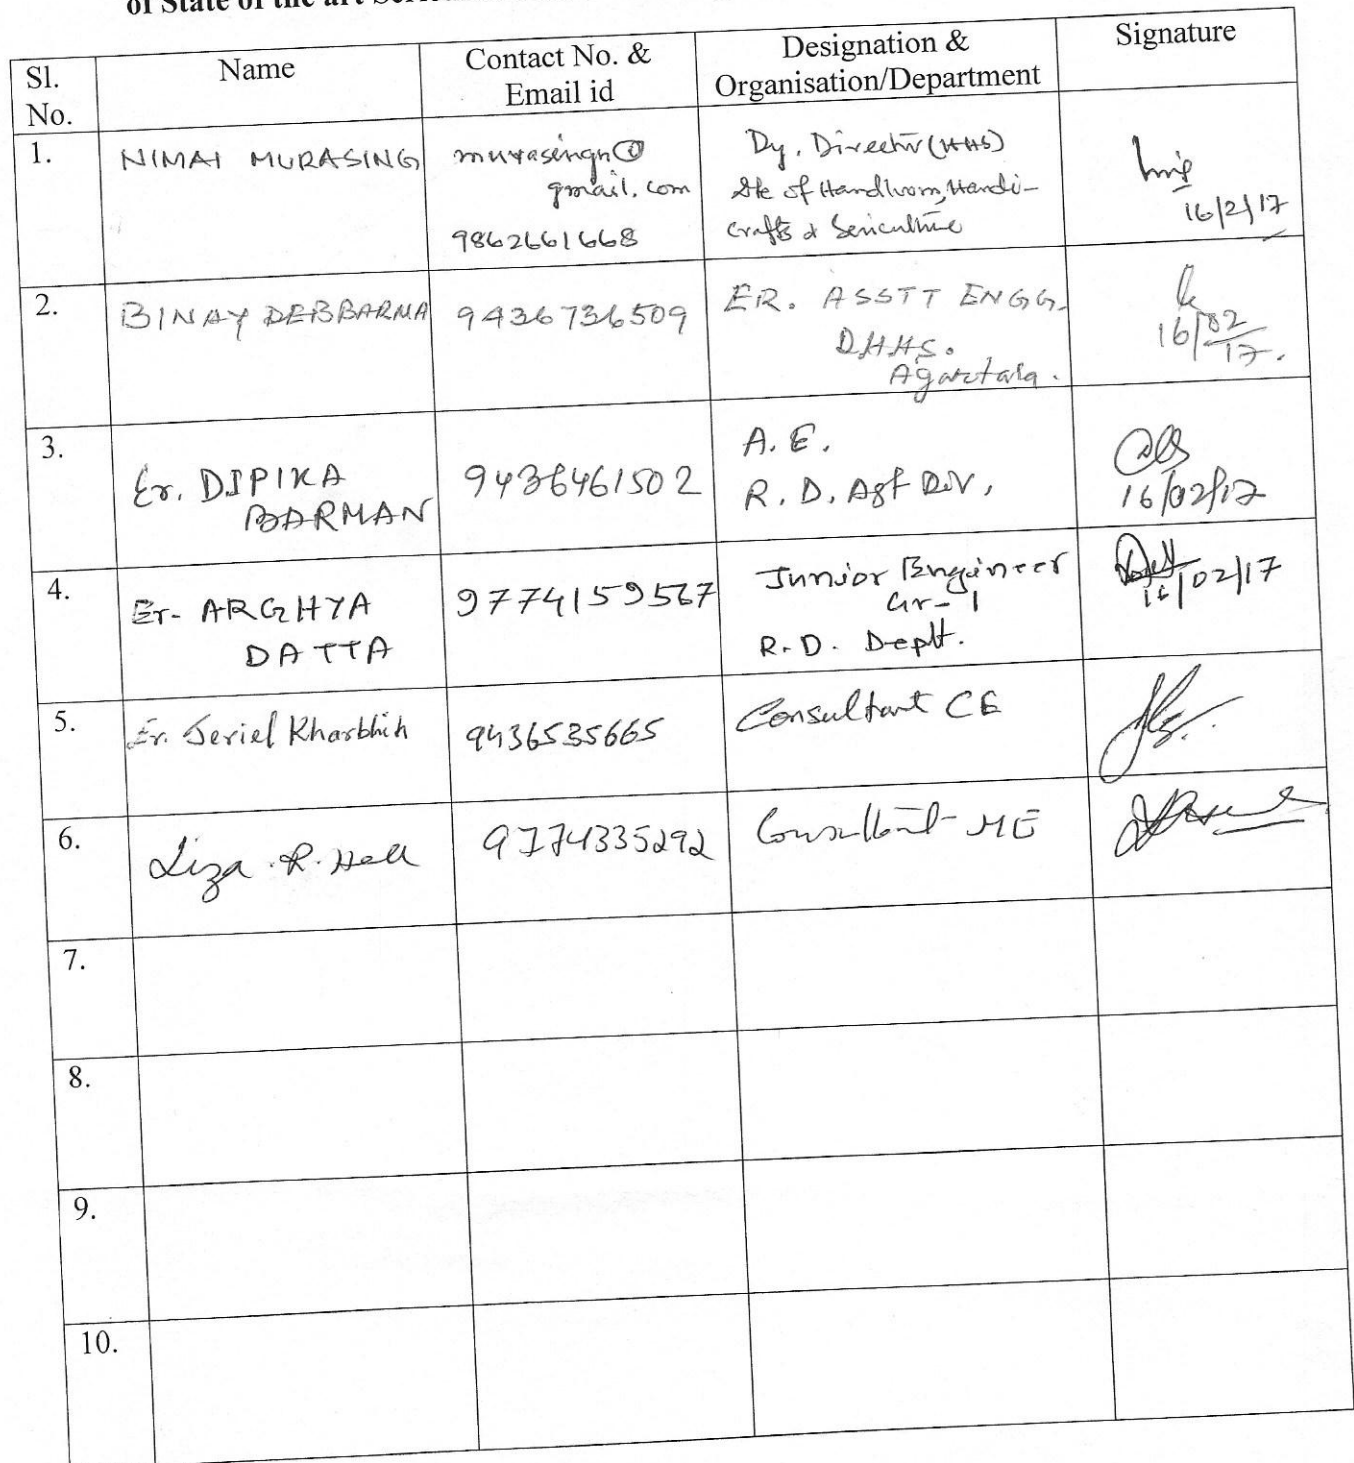 of State of the art
Sl. No.
Name
Contact No. & Email id
Designation & Organisation/Department
Signature
1.
NIMAI MURASING
murasingn@
gmail.com
9862661668
Dy. Director (HHS)
Dte of Handloom, Handi-
crafts & Sericulture
16/2/17
2.
BINAY DEBBARMA
9436736509
ER. ASSTT ENGG.
DHHS.
Agartala.
16/02/17.
3.
Er. DIPIKA
BARMAN
9436461502
A.E.
R.D. Agt Div,
16/02/17
4.
Er- ARGHYA
DATTA
9774159567
Junior Engineer
Gr-1
R.D. Deptt.
16/02/17
5.
Er. Jeriel Kharbhih
9436535665
Consultant CE
6.
Liza R.
9774335292
Consultant ME
7.
8.
9.
10.